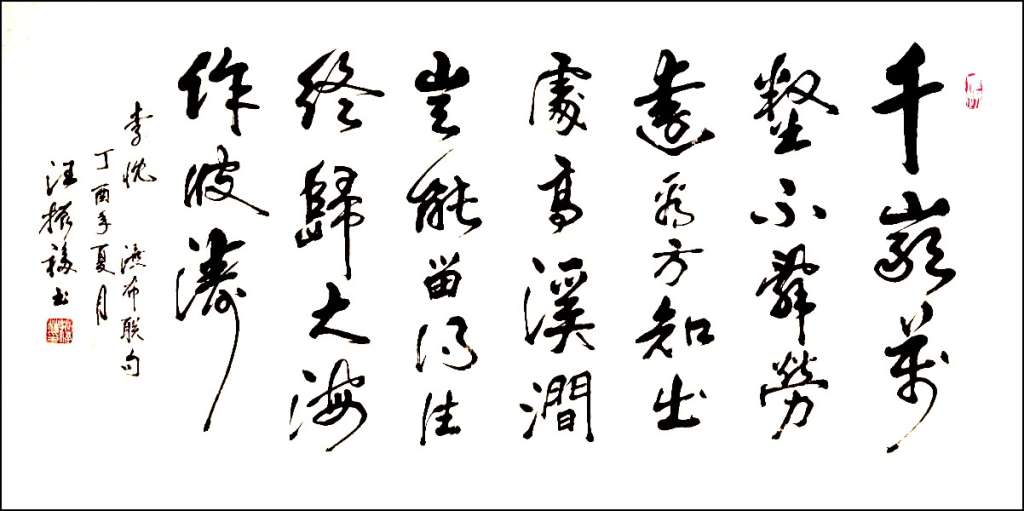 千巖萬
壑不辭勞
遠看方知出
處高溪澗
豈能留得住
終歸大海
作波濤
李忱 希联句
丁酉年夏月
汪振福书